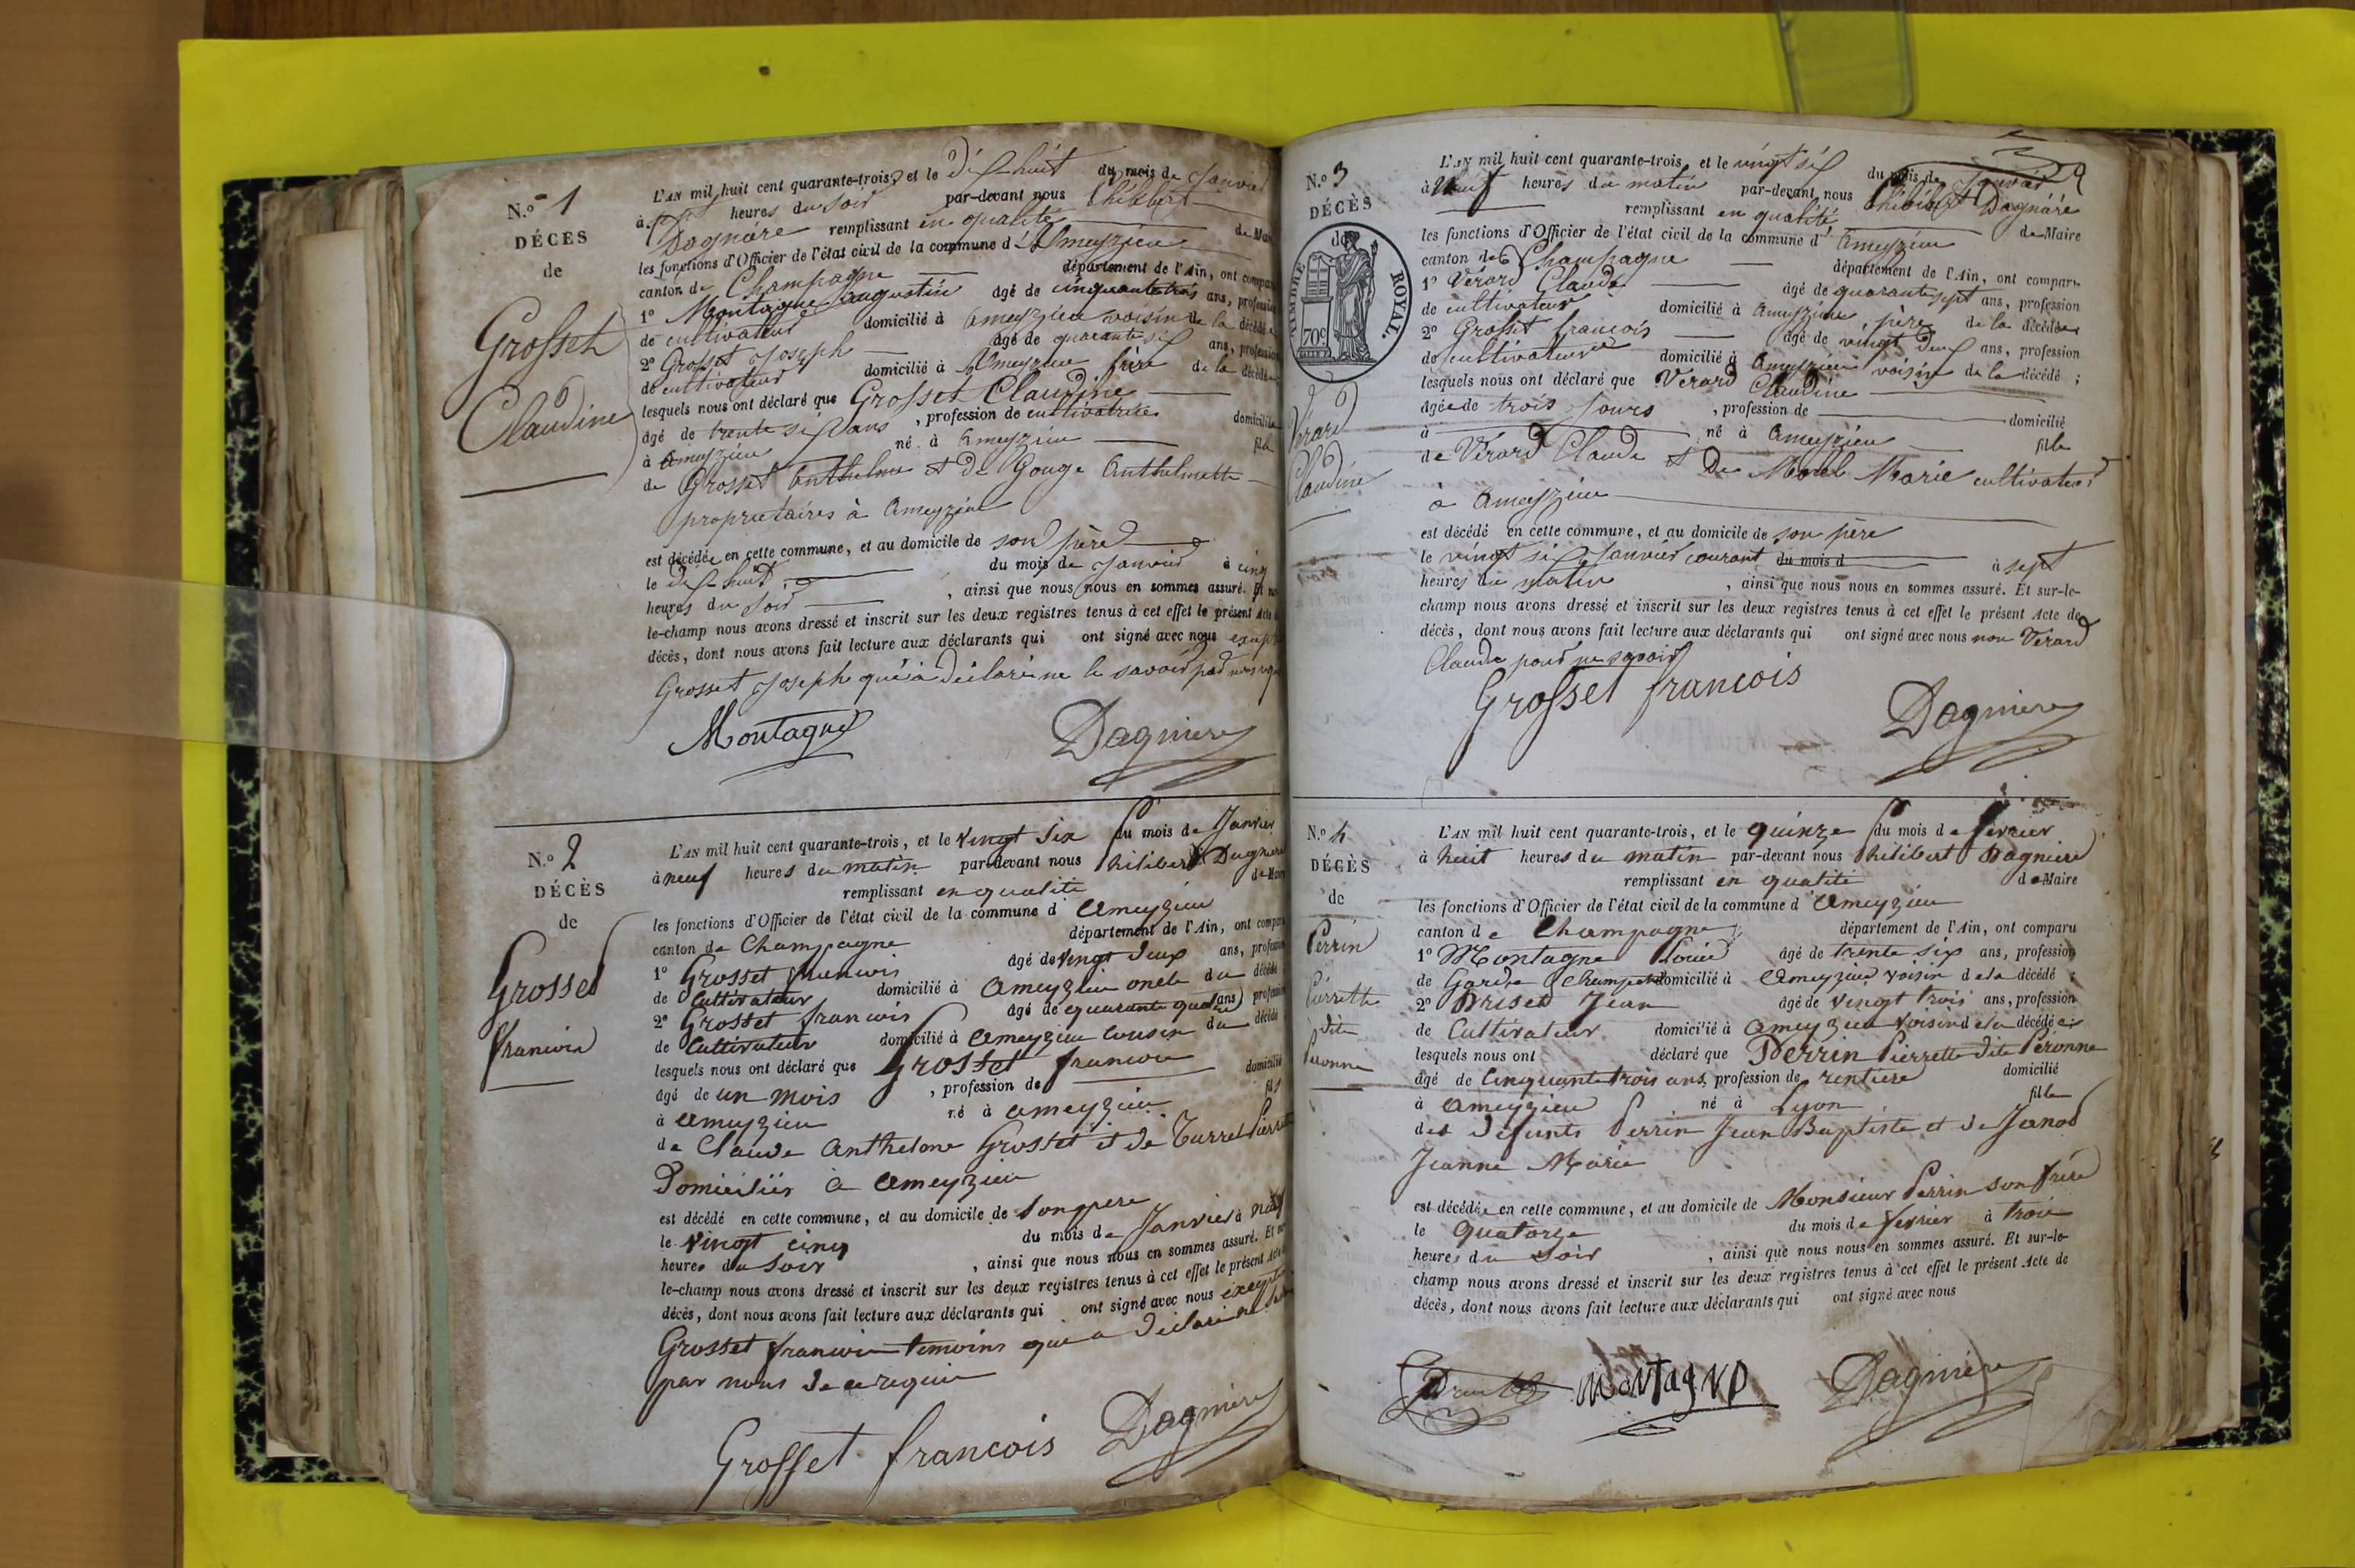 N.º 1
DÉCÈS
de
Grosset
Claudine
L'AN mil huit cent quarante-trois, et le dix huit du mois de Janvier
à heures du soir par-devant nous Philibert
Dagnière remplissant en qualité de Maire
les fonctions d'Officier de l'état civil de la commune d'Ameyzieu
canton de Champagne département de l'Ain, ont comparu
1º Montagne augustin âgé de cinquante trois ans, profession
de cultivateur domicilié à ameyzieu voisin de la décédée
2º Grosset Joseph âgé de quarante six ans, profession
de cultivateur domicilié à Ameyzieu de la décédée
lesquels nous ont déclaré que Grosset Claudine
âgé de trente six ans, profession de cultivatrice domicilié
à ameyzieu né à ameyzieu fille
de Grosset Anthelme et de Gouge Anthelmette
propriétaires à ameyzieu
est décédée en cette commune, et au domicile de son père
le dix huit du mois de Janvier à cinq
heures du soir, ainsi que nous nous en sommes assuré. Et sur-
le-champ nous avons dressé et inscrit sur les deux registres tenus à cet effet le présent Acte de
décès, dont nous avons fait lecture aux déclarants qui ont signé avec nous excepté
Grosset Joseph qui a déclaré ne le savoir
Montagne Dagniere
N.º 2
DÉCÈS
de
Grosset
francois
L'AN mil huit cent quarante-trois, et le vingt six du mois de Janvier
à neuf heures du matin par-devant nous Philibert Dagniere
remplissant en qualité de Maire
les fonctions d'Officier de l'état civil de la commune d'ameyzieu
canton de Champagne département de l'Ain, ont comparu
1º Grosset francois âgé de vingt deux ans, profession
de Cultivateur domicilié à ameyzieu oncle du décédé
2º Grosset francois âgé de quarante quatre ans, profession
de Cultivateur domicilié à ameyzieu cousin du décédé
lesquels nous ont déclaré que Grosset francois
âgé de un mois, profession de domicilié
à ameyzieu né à ameyzieu fils
de Claude Anthelme Grosset et de Turrel Pierrette
Domiciliés à ameyzieu
est décédé en cette commune, et au domicile de son père
le vingt cinq du mois de Janvier à neuf
heures du soir, ainsi que nous nous en sommes assuré. Et sur-
le-champ nous avons dressé et inscrit sur les deux registres tenus à cet effet le présent Acte de
décès, dont nous avons fait lecture aux déclarants qui ont signé avec nous excepté
Grosset francois temoins qui a déclaré ne
par nous de ce requis
Grosset francois Dagniere
N.º 3
DÉCÈS
de
TIMBRE ROYAL.
70c
Vérard
Claudine
L'AN mil huit cent quarante-trois, et le vingt six du mois de Janvier
à neuf heures du matin par-devant nous Philibert Dagnière
remplissant en qualité de Maire
les fonctions d'Officier de l'état civil de la commune d'ameyzieu
canton de Champagne département de l'Ain, ont comparu
1º Vérard Claude âgé de quarante sept ans, profession
de cultivateur domicilié à Ameyzieu, père de la décédée
2º Grosset francois âgé de vingt deux ans, profession
de cultivateur domicilié à Ameyzieu voisin de la décédé ;
lesquels nous ont déclaré que Verard Claudine
âgée de trois Jours, profession de domicilié
à né à ameyzieu fille
de Vérard Claude et de Morel Marie cultivateurs
à ameyzieu
est décédé en cette commune, et au domicile de son père
le vingt six Janvier courant du mois d à sept
heures du matin, ainsi que nous nous en sommes assuré. Et sur-le-
champ nous avons dressé et inscrit sur les deux registres tenus à cet effet le présent Acte de
décès, dont nous avons fait lecture aux déclarants qui ont signé avec nous non Verard
Claude pour ne savoir
Grosset francois
Dagniere
N.º 4
DÉCÈS
de
Perrin
Pierrette
dite
Peronne
L'AN mil huit cent quarante-trois, et le quinze du mois de fevrier
à huit heures du matin par-devant nous Philibert Dagniere
remplissant en qualité de Maire
les fonctions d'Officier de l'état civil de la commune d'ameyzieu
canton de Champagne département de l'Ain, ont comparu
1º Montagne Louis âgé de trente six ans, profession
de Garde Champetre domicilié à Ameyzieu voisin de la décédé ;
2º Briset Jean âgé de vingt trois ans, profession
de Cultivateur domicilié à ameyzieu voisin de la décédée
lesquels nous ont déclaré que Perrin Pierrette dite Péronne
âgé de Cinquante trois ans, profession de rentière domicilié
à ameyzieu né à Lyon fille
des defunts Perrin Jean Baptiste et de Janod
Jeanne Marie
est décédée en cette commune, et au domicile de Monsieur Perrin son frère
le quatorze du mois de fevrier à trois
heures du soir, ainsi que nous nous en sommes assuré. Et sur-le-
champ nous avons dressé et inscrit sur les deux registres tenus à cet effet le présent Acte de
décès, dont nous avons fait lecture aux déclarants qui ont signé avec nous
Dagniere